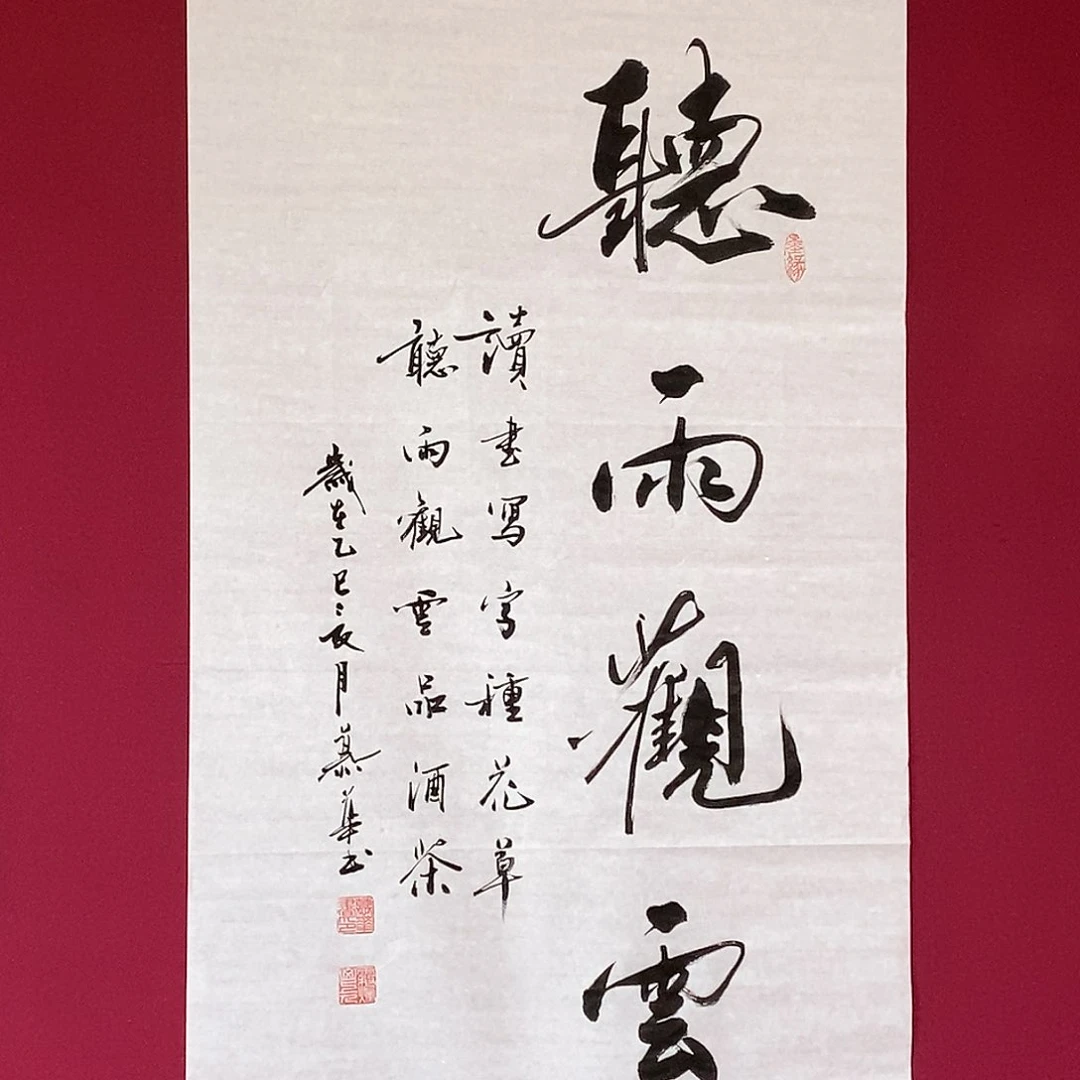 聽雨觀雲
讀書寫字種花草
聽雨觀雲品酒茶
歲在乙巳之夜月慕華书
墨緣